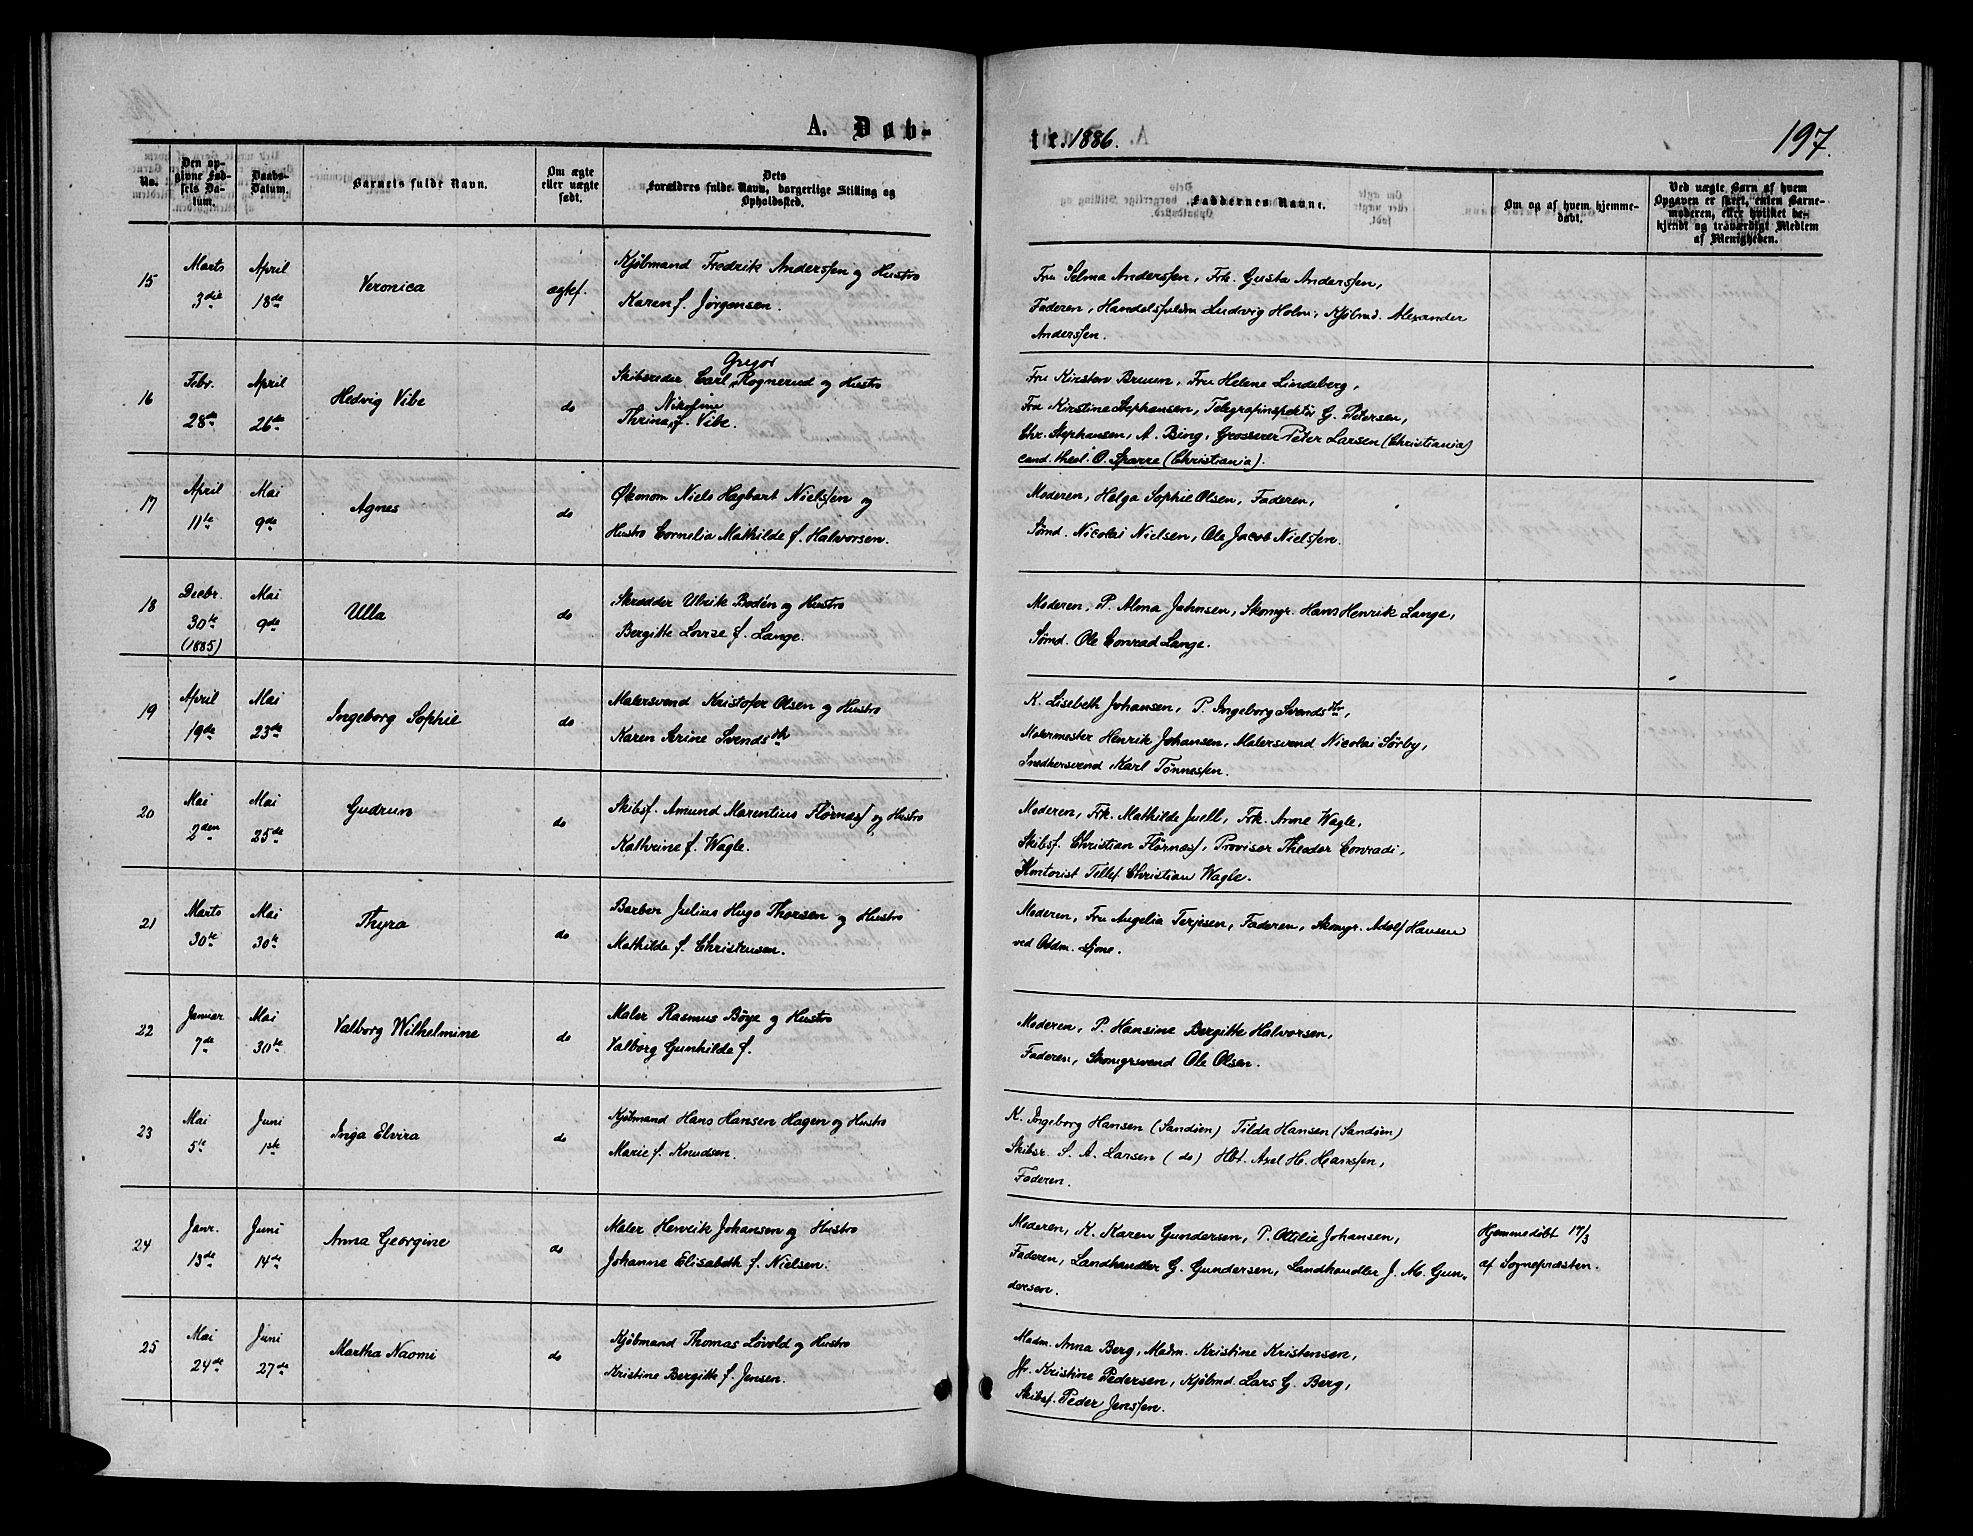 A. Døb-
te. 1886.
197.
No.
Den op-
givne Fød-
sels Da-
tum.
Daabs-
Datum.
Barnets fulde Navn.
Om ægte
eller uægte
født.
Dets
Forældres fulde Navn, borgerlige Stilling og
Opholdssted.
Faddernes Navne.
Om og af hvem hjemme-
døbt.
Ved uægte Børn af hvem
Opgaven er skeet, enten Barne-
moderen, eller hvilket be-
kjendt og troværdigt Medlem
af Menigheden.
15 Marts 3die April 18de Veronica ægtef.
Kjøbmand Fredrik Anderssen og Hustro
Karen f. Jørgensen.
Fru Selma Anderssen, Frk. Gusta Anderssen,
Faderen, Handelsfuldm Ludvig Holm, Kjøbmd. Alexander
Anderssen.
16 Febr. 28de April 26de Hedvig Vibe do
Gregor
Skibsreder Carl Rognerud og Hustro
Nikoline
Thrina f. Vibe.
Fru Kirsten Bruun, Fru Helene Lindeberg,
Fru Kirstine Stephansen, Telegrafinspektör G. Petersen,
Chr. Stephansen, A. Bing, Grosserer Peter Larsen (Christiania)
cand. theol. O. Sparre (Christiania).
17 April 11te Mai 9de Agnes do
Økonom Niels Hagbart Nielssen og
Hustro Cornelia Mathilde f. Halvorsen.
Moderen, Helga Sophie Olsen, Faderen,
Sømd. Nicolai Nielsen, Ole Jacob Nielssen.
18 Decbr. 30te (1885) Mai 9de Ulla do
Skrædder Ulrik Bodén og Hustro
Bergitte Lovise f. Lange.
Moderen, P. Alma Jahnsen, Skomgr. Hans Henrik Lange,
Sømd. Ole Conrad Lange.
19 April 19de Mai 23de Ingeborg Sophie do
Malersvend Kristofer Olsen og Hustro
Karen Serine Svendsdtr
K. Lisebeth Johansen, P. Ingeborg Svendsdtr,
Malermester Henrik Johansen, Malersvend Nicolai Sørby,
Snedkersvend Karl Tönnessen.
20 Mai 2den Mai 25de Gudrun do
Skibsf. Amund Marentius Flörnæss og Hustro
Kathrine f. Wagle.
Moderen, Frk. Mathilde Juell, Frk. Anne Wagle,
Skibsf. Christian Flörnæss, Provisor Theodor Conradi,
Kontorist Tellef Christian Wagle.
21 Marts 30te Mai 30te Thyra do
Barber Julius Hugo Thorsen og Hustro
Mathilde f. Christensen.
Moderen, Fru Angelia Terjesen, Faderen, Skomgr. Adolf Hansen
ved Oddm. Sjone.
22 Januar 7de Mai 30te Valborg Wilhelmine do
Maler Rasmus Böye og Hustro
Valborg Gunhilde f.
Moderen, P. Hansine Bergitte Halvorsen,
Faderen, Skomgrsvend Ole Olsen.
23 Mai 5te Juni 1ste Inga Elvira do
Kjøbmand Hans Hansen Hagen og Hustro
Marie f. Knudsen.
K. Ingeborg Hansen (Sandöen) Tilda Hansen (Sandöen)
Skibsr. S. A. Larsen (do) Hbt. Axel H. Hanssen,
Faderen.
24 Janr. 13de Juni 14de Anna Georgine do
Maler Henrik Johansen og Hustro
Johanne Elisabeth f. Nielsen.
Moderen, K. Karen Gundersen, P. Ottilie Johansen,
Faderen, Landhandler G. Gundersen, Landhandler J. M. Gun-
dersen.
Hjemmedøbt 17/3
af Sognepræsten.
25 Mai 24de Juni 27de Martha Naomi do
Kjøbmand Thomas Lövold og Hustro
Kristine Bergitte f. Jensen.
Madm. Anna Berg, Madm. Kristine Kristensen,
Jfr. Kristine Pedersen, Kjøbmd. Lars G. Berg,
Skibsf. Peder Jenssen.